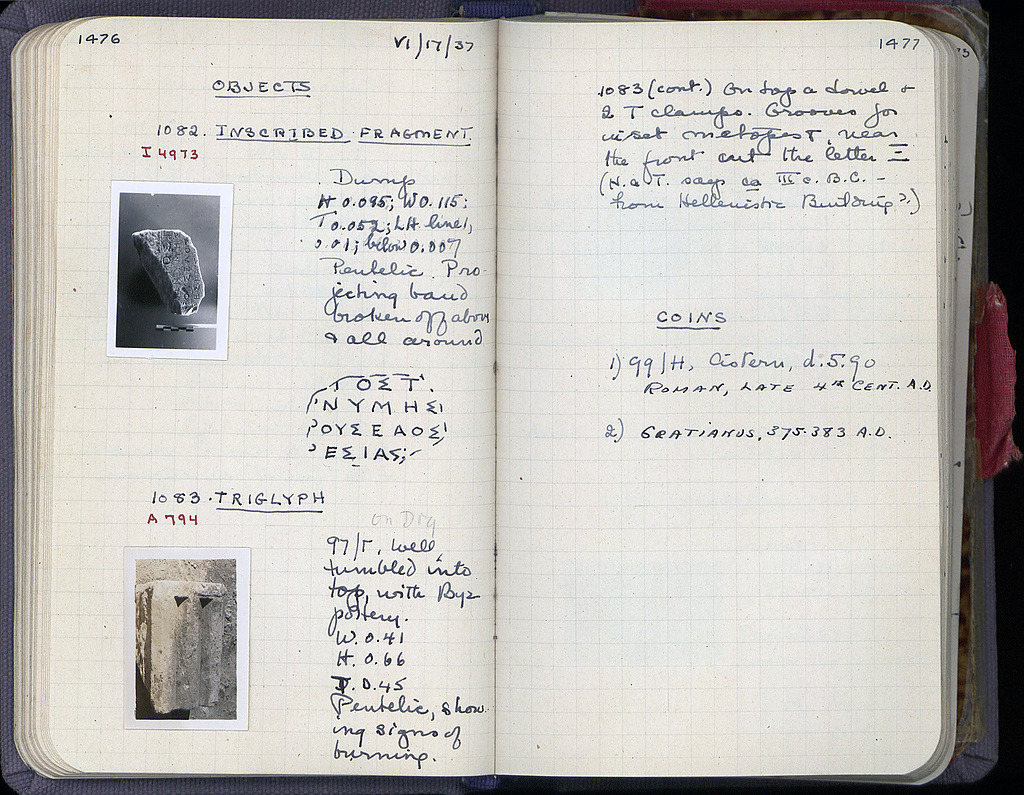 1476
VI/17/37
OBJECTS
1082. INSCRIBED FRAGMENT.
I 4973
Dump
H 0.095; W 0.115;
T 0.052; LH line 1,
0.01; below 0.007
Pentelic. Pro-
jecting band
broken off above
& all around
ΤΟΣΤ
ΝΥΜΗΣ
ΟΥΣΕΑΟΣ
ΕΣΙΑΣ
1083. TRIGLYPH
A 794
on Dig
97/Γ, well,
tumbled into
top, with Byz
pottery.
W. 0.41
H. 0.66
T. 0.45
Pentelic, show-
ing signs of
burning.
1477
1083 (cont.) On top a dowel &
2 T clamps. Grooves for
inset metopes &, near
the front cut the letter Ξ
(H.a.T. says ca III c. B.C. -
from Hellenistic Building?)
COINS
1) 99/H, Cistern, d. 5.90
ROMAN, LATE 4TH CENT. A.D.
2) GRATIANUS, 375-383 A.D.